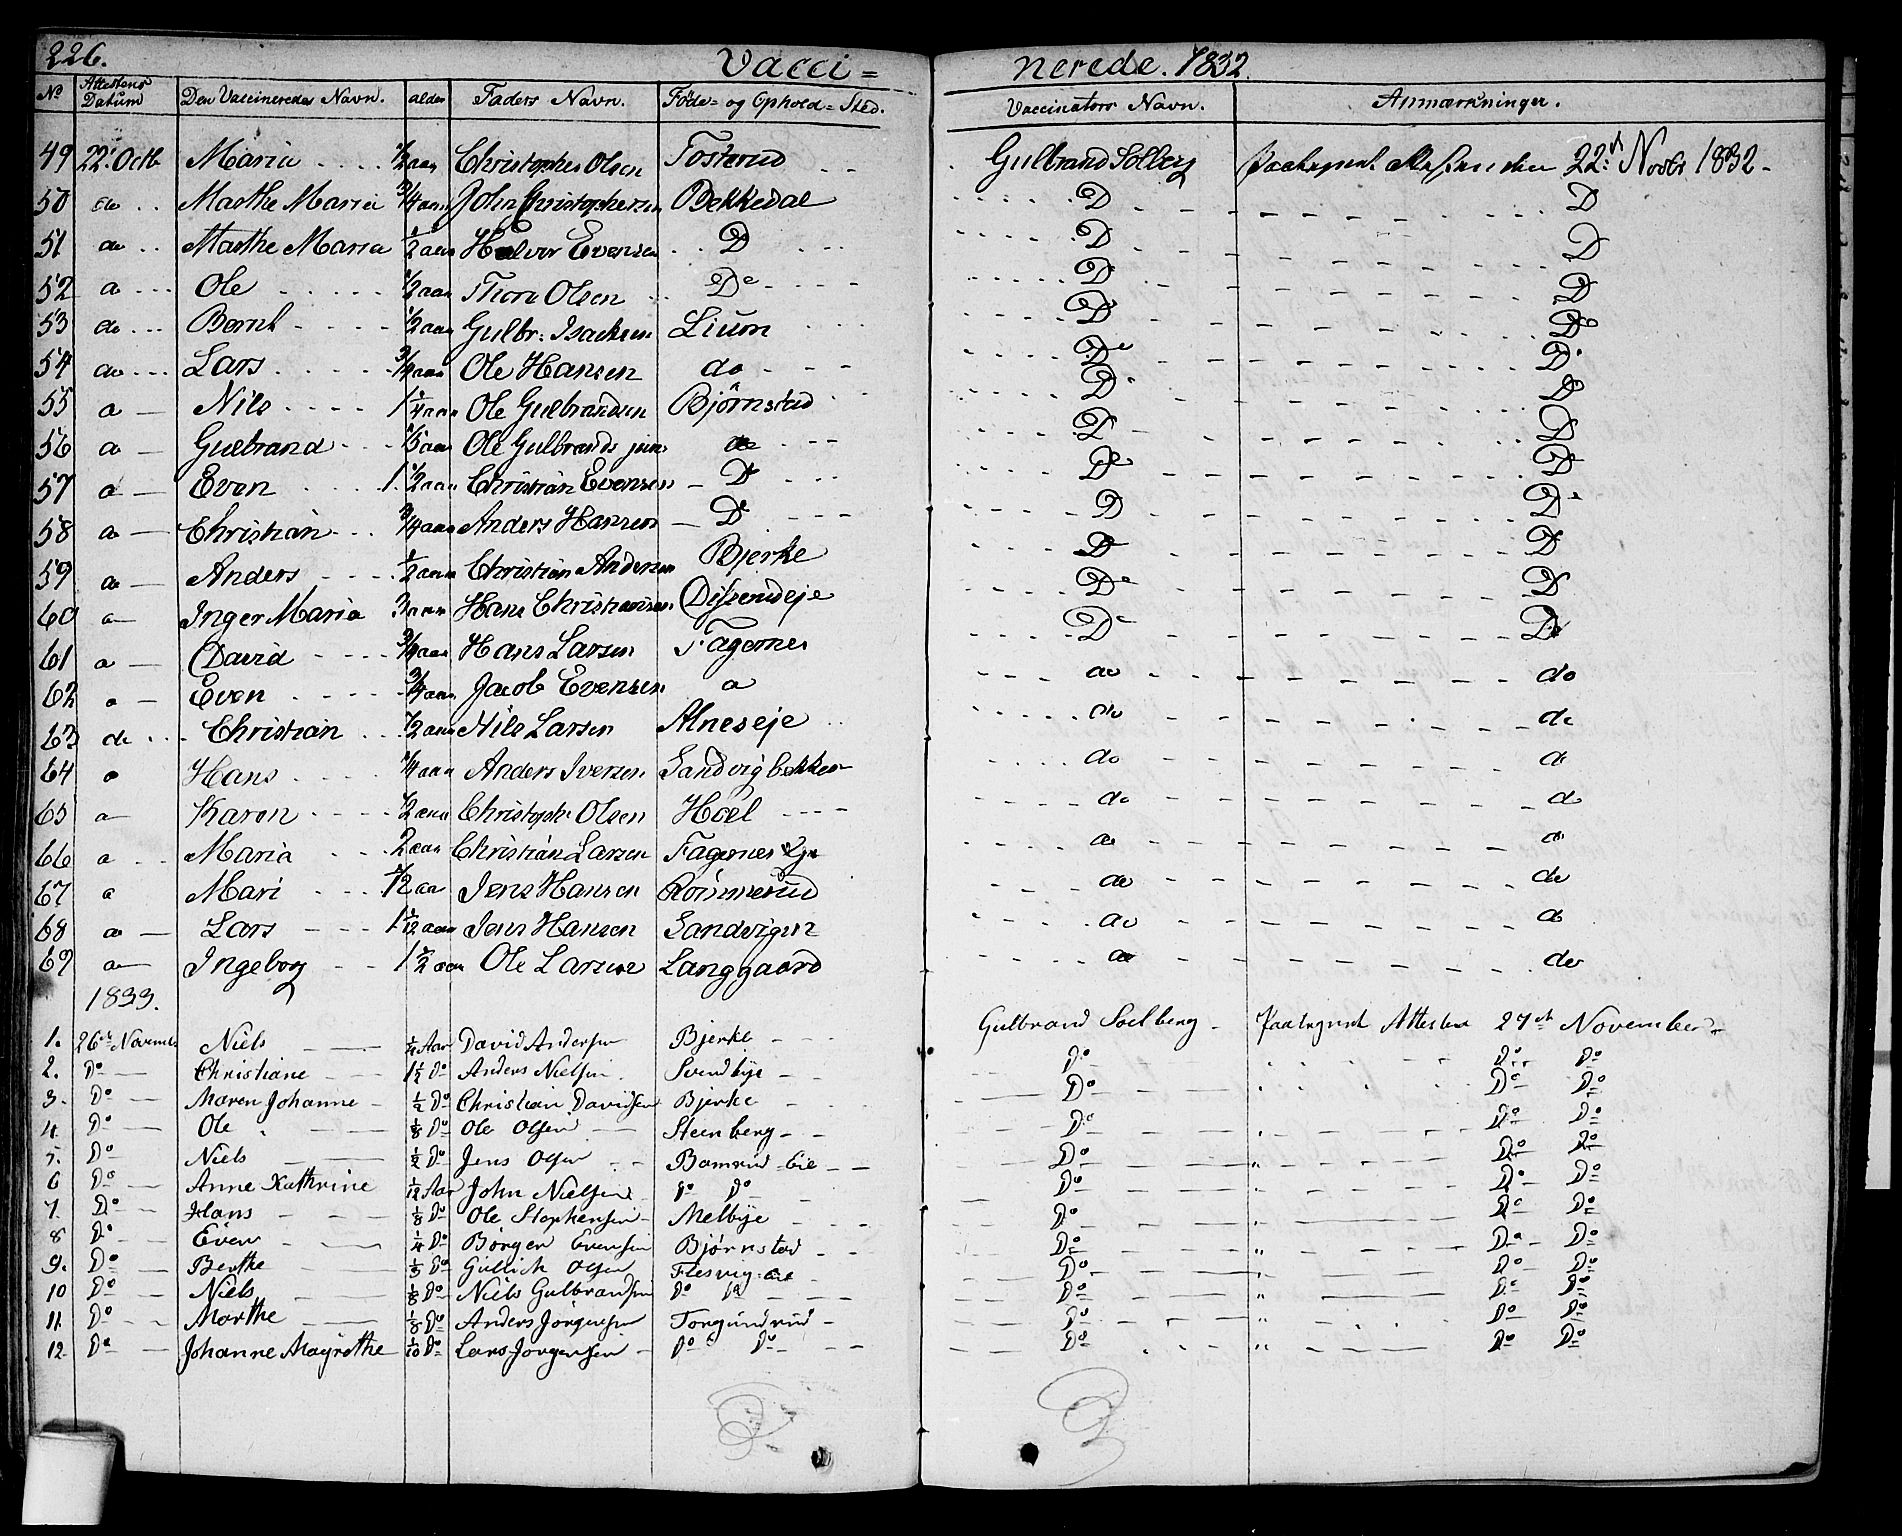 226. Vacci= nerede. 1832.
No Attestens Datum Den Vaccineredes Navn. alder Faders Navn. Føde= og Ophold=Sted. Vaccinators Navn. Anmærkninger.
49 22. Octb Maria 1/2 aar Christopher Olsen Fosterud Gulbrand Solberg 22. Novbr 1832
50 do Marthe Maria 3/4 aar John Christophersen Bekkedal D D
51 do Marthe Maria 1/2 aar Halvor Evensen D D D
52 do Ole 1/2 aar Thore Olsen Do Do D
53 do Bernt 1/2 aar Gulbr: Isachsen Lium D Do
54 do Lars 3/4 aar Ole Hansen do Do D
55 do Nils 1 1/4 aar Ole Gulbrandsen Bjørnstad D D
56 do Gulbrand 1/5 aar Ole Gulbrands jun do D D
57 do Even 1 1/2 aar Christian Evensen D Do Do
58 do Christian 3/4 aar Anders Hansen D D Do
59 do Anders 1/2 aar Christian Andersen Bjerke D D
60 do Inger Maria 3 aar Hans Christiansen Disserudeje Do D
61 do David 3/4 aar Hans Larsen Fagernes Do D
62 do Even 3/4 aar Jacob Evensen do do do
63 do Christian 1/2 aar Nils Larsen Alneseje do do
64 do Hans 1/4 aar Anders Iversen Sandvigbakken do do
65 do Karen 1/2 aar Christoph: Olsen Hoel do do
66 do Maria 2 aar Christian Larsen Fagernes Eje do do
67 do Mari 1/2 aar Jens Hansen Rømmerud do do
68 do Lars 1 1/2 aar Jens Hansen Sandvigen do do
69 do Ingeborg 1 1/2 aar Ole Larsen Langgaard do do
1833.
1. 26de November Niels 1/4 Aar David Andersen Bjerke Gulbrand Soelberg Paategnet Attesten 27de November
2. Do Christiane 1 1/2 Do Anders Nielsen Svendbye Do Do Do
3. Do Maren Johanne 1/2 Do Christian Davidsen Bjerke Do Do Do
4. Do Ole 1/8 Do Ole Olsen Steenberg Do Do Do
5. Do Niels 1/2 Do Jens Olsen Do Do Do
6 Do Anne Kathrine 1/12 Aar John Nielsen Do Do Do Do Do
7. Do Hans 1/8 Do Ole Stephensen Melbye Do Do Do
8 Do Even 1/4 Do Børger Evensen Bjørnstad Do Do Do
9. Do Berthe 1/3 Do Gullich Olsen Flesvig Do Do Do
10 Do Niels 1/8 Do Niels Gulbrandsen Do Do Do Do Do
11. Do Marthe 1/8 Do Anders Jørgensen Torgundrud Do Do Do
12. Do Johanne Magrethe 1/10 Do Lars Jørgensen Do Do Do Do Do